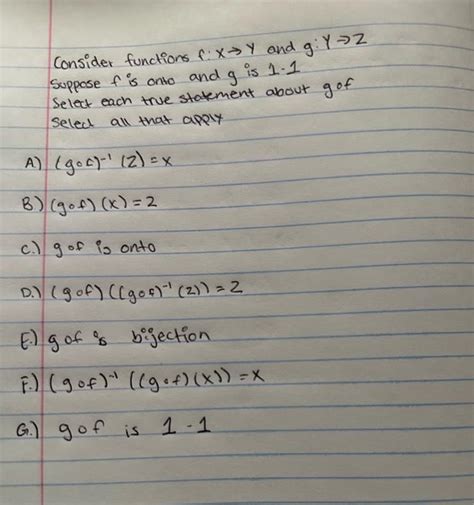 Consider functions f: X→Y and g: Y→Z
Suppose f is onto and g is 1-1
Select each true statement about gof
Select all that apply
A) (gof)⁻¹ (Z) = X
B) (gof) (X) = Z
C.) gof is onto
D.) (gof) ((gof)⁻¹ (Z)) = Z
E.) gof is bijection
F.) (gof)⁻¹ ((gof) (X)) = X
G.) gof is 1-1